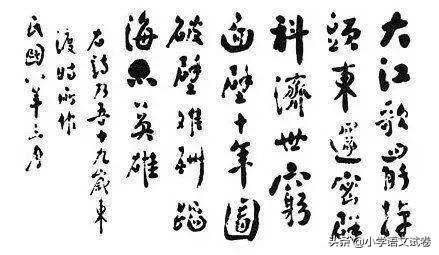 大江歌罷掉
頭東邃密群
科濟世窮
面壁十年圖
破壁難酬蹈
海亦英雄
右詩乃吾十九歲東
渡時所作
民國八年三月
头条 @小学语文试卷